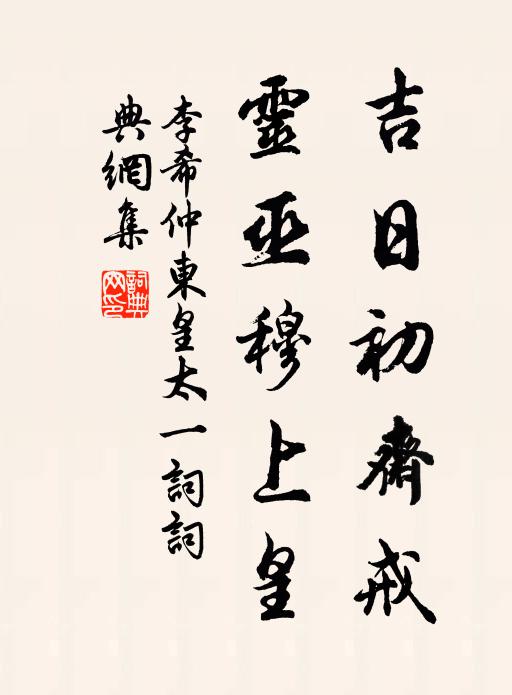 吉日初齋戒
靈巫穆上皇
李希仲東皇太一詞詞
典網集
詞典網印